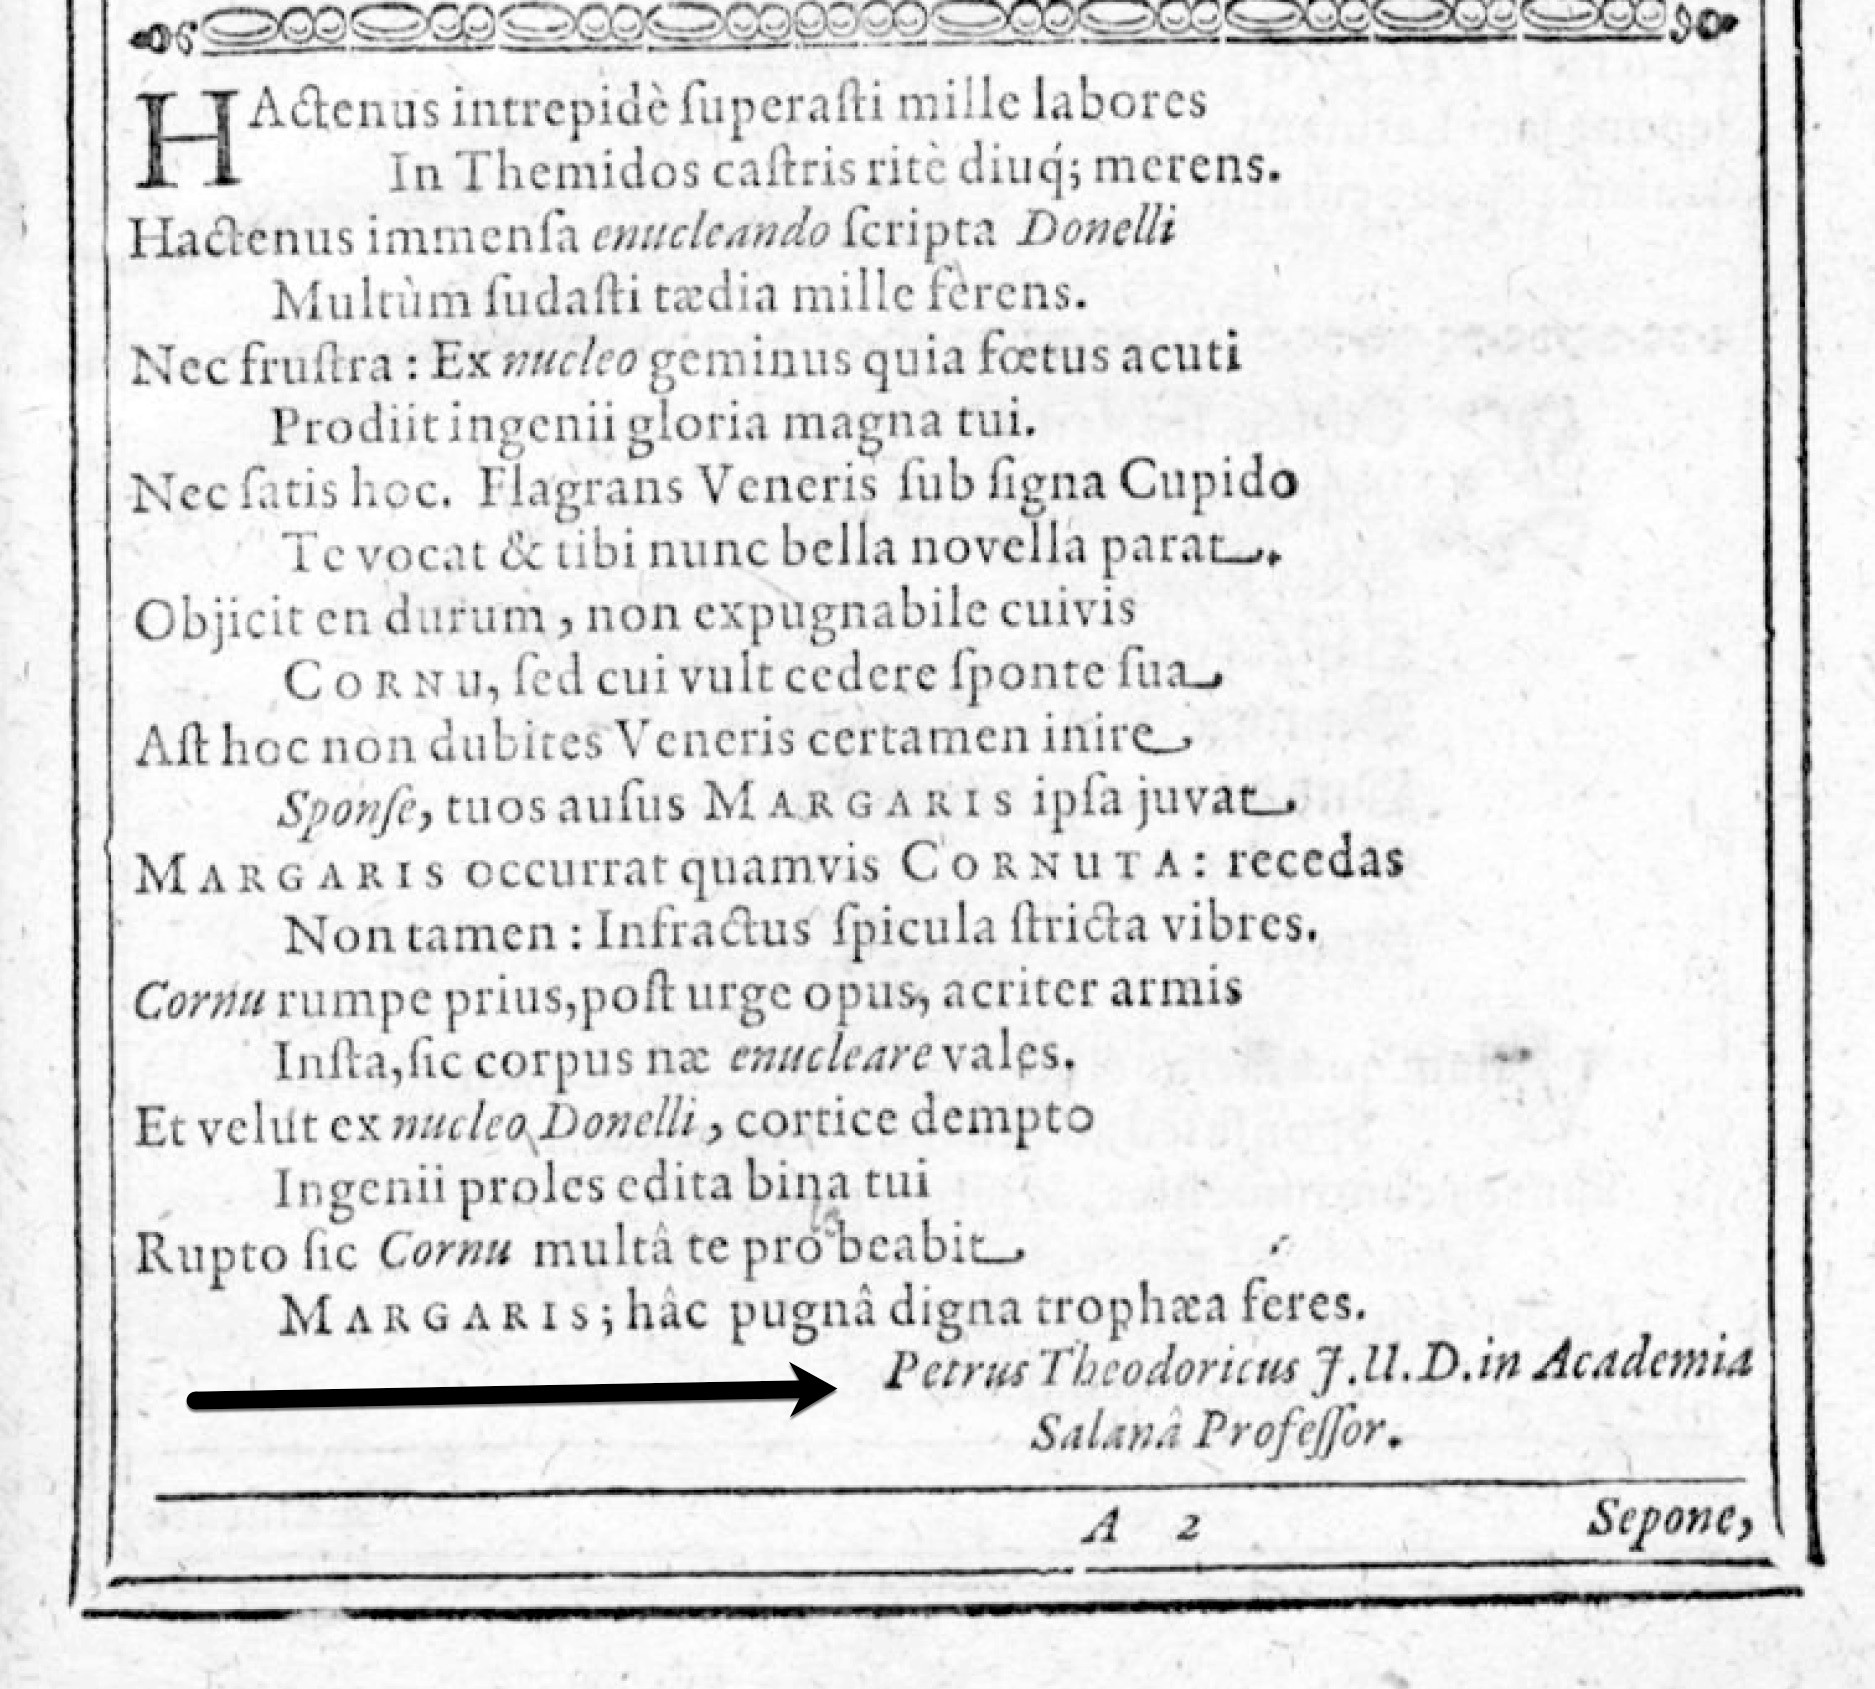 HActenus intrepidè ſuperaſti mille labores
In Themidos caſtris ritè diuq́; merens.
Hactenus immenſa enucleando ſcripta Donelli
Multùm ſudaſti tædia mille ferens.
Nec fruſtra : Ex nucleo geminus quia fœtus acuti
Prodiit ingenii gloria magna tui.
Nec ſatis hoc. Flagrans Veneris ſub ſigna Cupido
Te vocat & tibi nunc bella novella parat.
Objicit en durum, non expugnabile cuivis
CORNU, ſed cui vult cedere ſponte ſua
Aſt hoc non dubites Veneris certamen inire
Sponſe, tuos auſus MARGARIS ipſa juvat
MARGARIS occurrat quamvis CORNUTA: recedas
Non tamen : Infractus ſpicula ſtricta vibres.
Cornu rumpe prius, poſt urge opus, acriter armis
Inſta, ſic corpus næ enucleare vales.
Et velut ex nucleo Donelli, cortice dempto
Ingenii proles edita bina tui
Rupto ſic Cornu multâ te pro beabit
MARGARIS; hâc pugnâ digna trophæa feres.
Petrus Theodoricus J.U.D. in Academia
Salanâ Profeſſor.
A 2
Sepone,